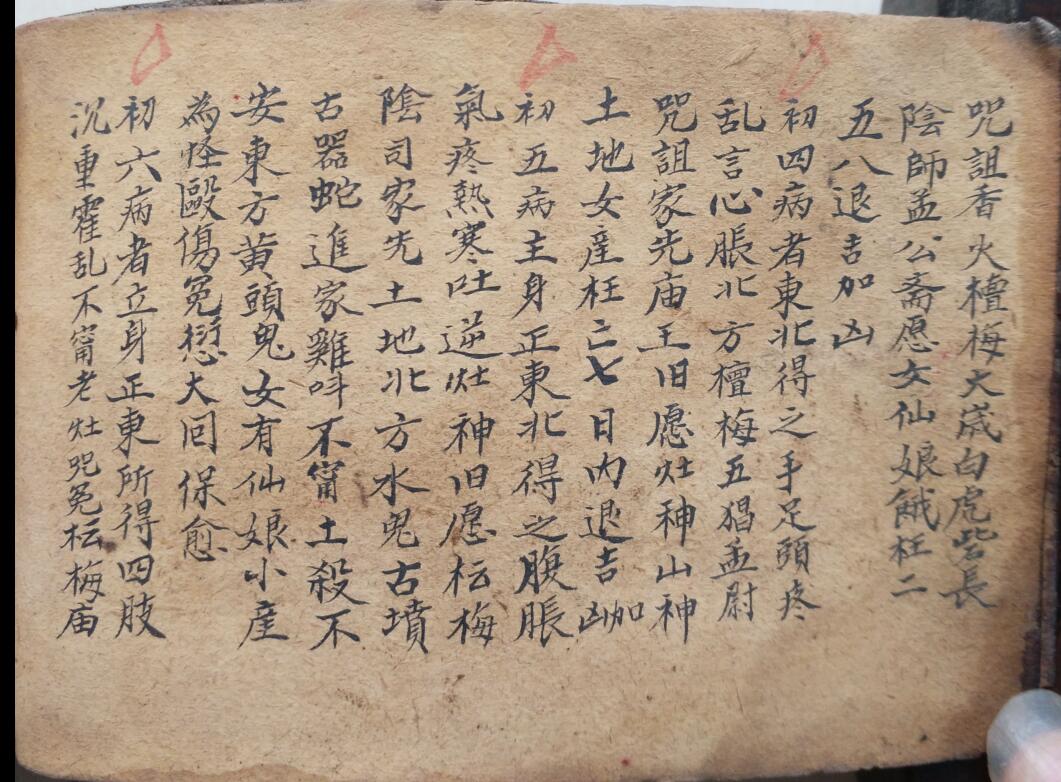 咒詛香火檀梅大歲白虎呰長
陰師孟公斋愿女仙娘餓枉二
五八退吉加凶
初四病者東北得之手足頭疼
乱言心脹北方檀梅五猖孟尉
咒詛家先庙王旧愿灶神山神
土地女産枉亡七日内退吉加凶
初五病主身正東北得之腹脹
氣疼熱寒吐逆灶神旧愿枟梅
陰司家先土地北方水鬼古墳
古器蛇進家雞呌不甯土殺不
安東方黄頭鬼女有仙娘小産
為怪毆傷冤愆大回保愈
初六病者立身正東所得四肢
沉重霍乱不甯老灶咒冤枟梅庙